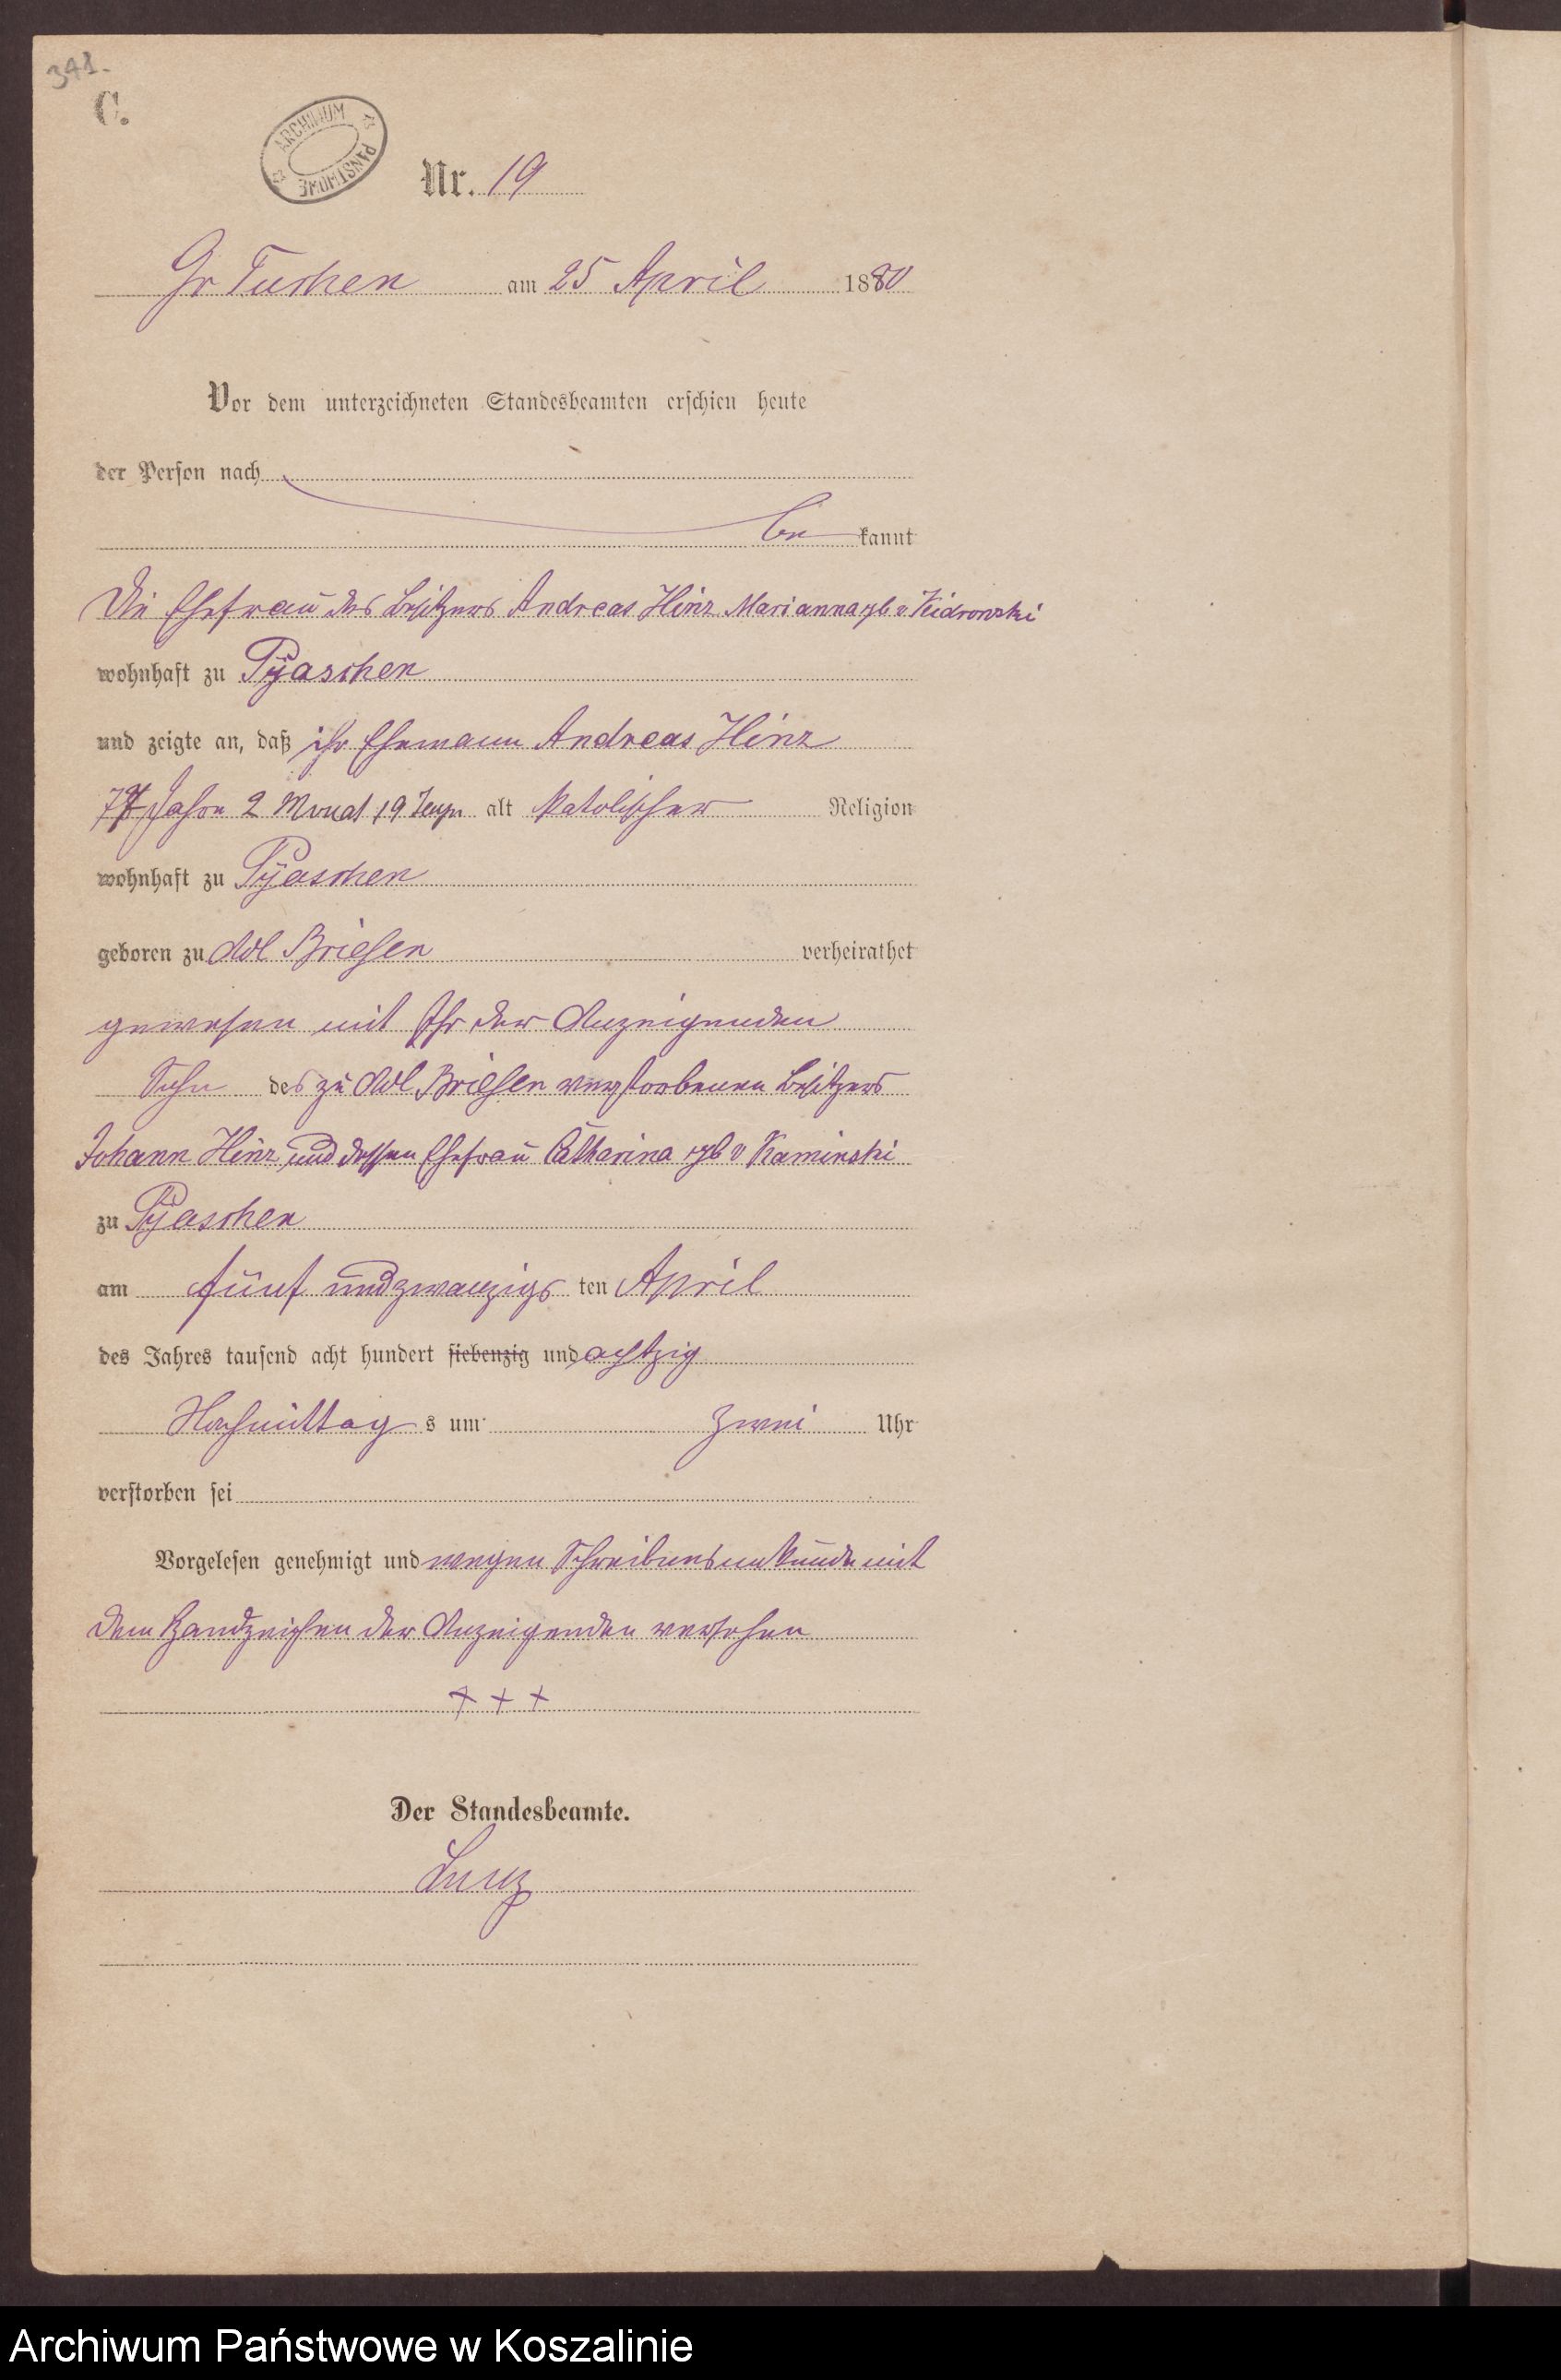 341.
C.
ARCHIWUM PAŃSTWOWE
Nr. 19
Gr Tuchen am 25 April 1880
Vor dem unterzeichneten Standesbeamten erschien heute
der Person nach
be kannt
Die Ehefrau des Besitzers Andreas Hinz Marianna geb v Kidrowski
wohnhaft zu Pyaschen
und zeigte an, daß ihr Ehemann Andreas Hinz
Jahre 2 Monat 19 Tage alt katolischer Religion
wohnhaft zu Pyaschen
geboren zu Adl Briesen verheirathet
gewesen mit Ihr der Anzeigenden
Sohn des zu Adl Briesen verstorbenen Besitzers
Johann Hinz und dessen Ehefrau Catharina geb v Kaminski
zu Pyaschen
am fünf undzwanzigs ten April
des Jahres tausend acht hundert siebenzig und achtzig
Nachmittag s um zwei Uhr
verstorben sei
Vorgelesen genehmigt und wegen Schreibensunkunde mit
dem Handzeichen der Anzeigenden versehen
+ + +
Der Standesbeamte.
Archiwum Państwowe w Koszalinie